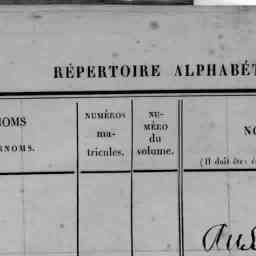 RÉPERTOIRE ALPHABÉT
NOMS
RNOMS.
NUMÉROS
ma-
tricules.
NU-
MÉRO
du
volume.
NO
(Il doit être